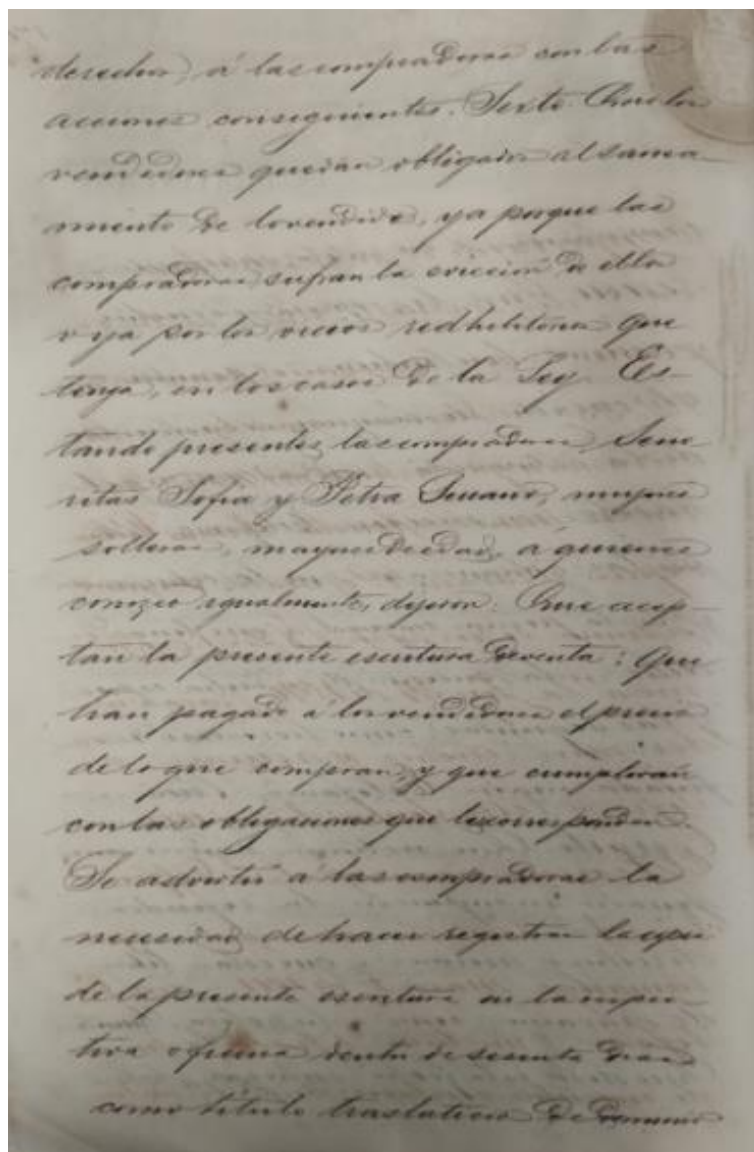 derechos, á las compradoras con las
acciones consiguientes. Sexto. Que los
vendedores quedan obligados al sanea-
miento de lo vendido, ya porque las
compradoras sufran la evicción de ello
o ya por los vicios redhibitorios que
tenga, en los casos de la Ley. Es-
tando presentes las compradoras, Seño-
ritas Sofía y Petra mujeres
solteras, mayores de edad, á quienes
conozco igualmente, dijeron: Que acep-
tan la presente escritura de venta: Que
han pagado á los vendedores el precio
de lo que compran, y que cumplirán
con las obligaciones que les corresponden.
Se advirtió á las compradoras la
necesidad de hacer registrar la copia
de la presente escritura en la respec-
tiva oficina dentro de sesenta dias
como título traslaticio de dominio